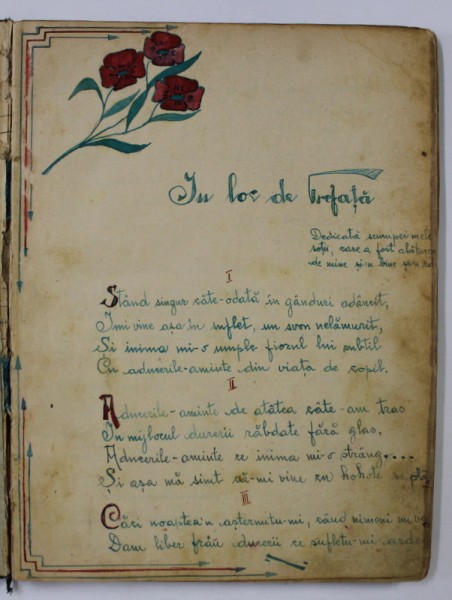 In loc de Prefață
Dedicată scumpei mele
soții, care a fost alăturea
de mine și-n bine și-n rău
I
Stând singur câte-odată în gânduri adâncit,
Îmi vine așa în suflet, un svon nelămurit,
Și inima mi-o umple fiorul lui subtil
Cu aducerile-aminte din viața de copil.
II
Aducerile-aminte de atâtea câte-am tras
În mijlocul durerii răbdate fără glas,
Aducerile-aminte ce inima mi-o strâng....
Și așa mă simt că-mi vine cu hohote să plâ
III
Căci noaptea'n așternutu-mi, când nimeni nu
Dam liber frâu durerii ce sufletu-mi arde